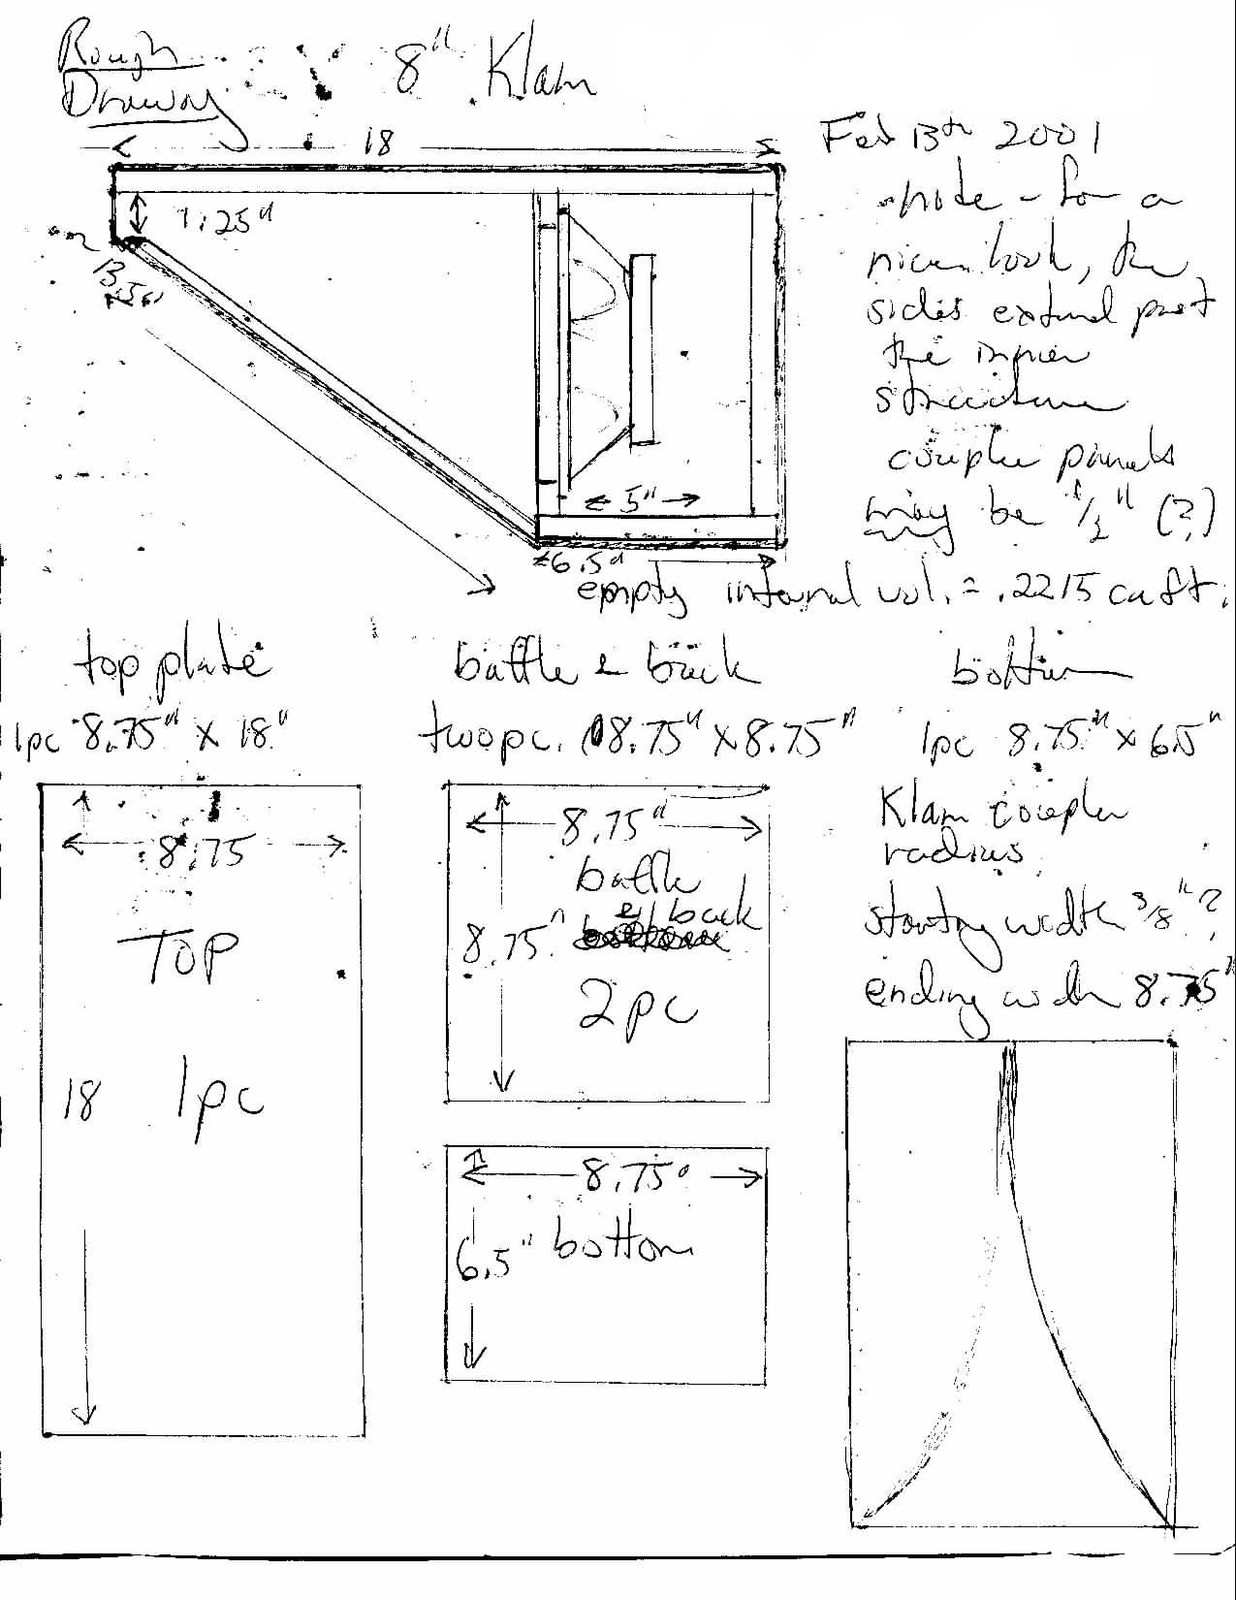 Rough
Drawing
8" Klam
18
Feb 13th 2001
note - for a
nicer look, the
sides extend past
the inner
structure
coupler panels
may be 1/2" (?)
1.25"
13.5"
5"
6.5"
empty internal vol. = .2215 cu ft.
top plate
1pc 8.75" x 18"
baffle & back
two pc. 8.75" x 8.75"
bottom
1pc 8.75" x 6.5"
8.75
TOP
18 1pc
8.75"
baffle
& back
8.75"
2pc
8.75"
6.5" bottom
Klam coupler
radius
starting width 3/8"?
ending width 8.75"